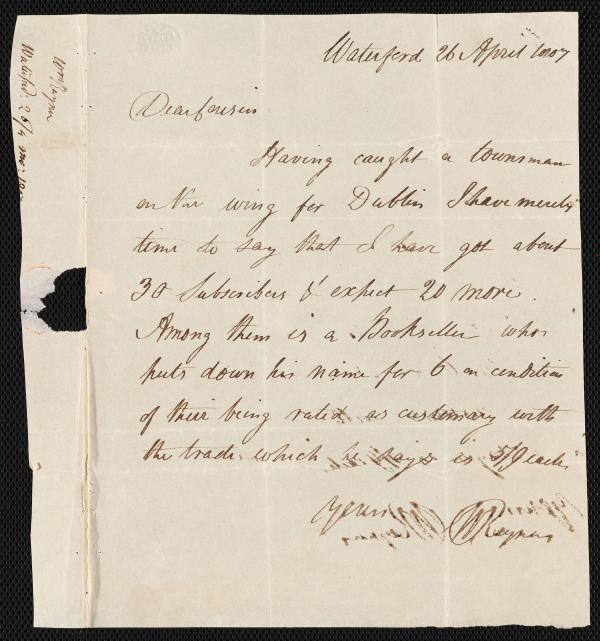 Waterford 26 April 1807
Dear Cousin
Having caught a townsman
on the wing for Dublin I have merely
time to say that I have got about
30 Subscribers & expect 20 more.
Among them is a Bookseller who
puts down his name for 6 on condition
of their being rated as customary with
the trade which he says is 5/9 each
Yours W Reynes
Waterfd. 26/4 mo: 18